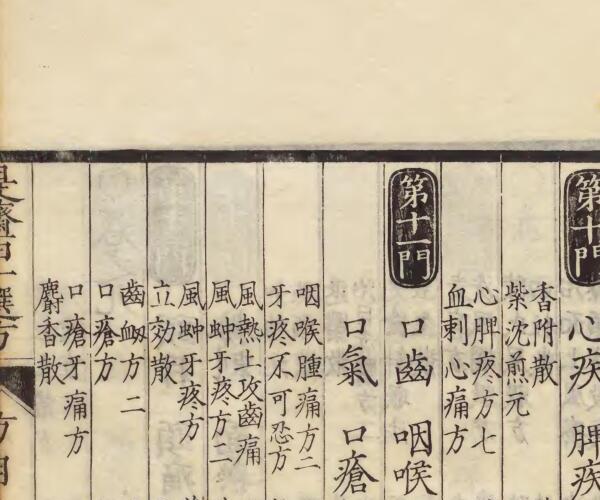 第十門
心疾 脾疾
香附散
紫沈煎元
心脾疼方七
血刺心痛方
第十一門
口齒 咽喉
口氣 口瘡
咽喉腫痛方二
牙疼不可忍方
風熱上攻齒痛
風蚛牙疼方二
風蚛牙疼方
立効散
齒衂方二
口瘡方
口瘡牙痛方
麝香散
是齋百一選方
方目